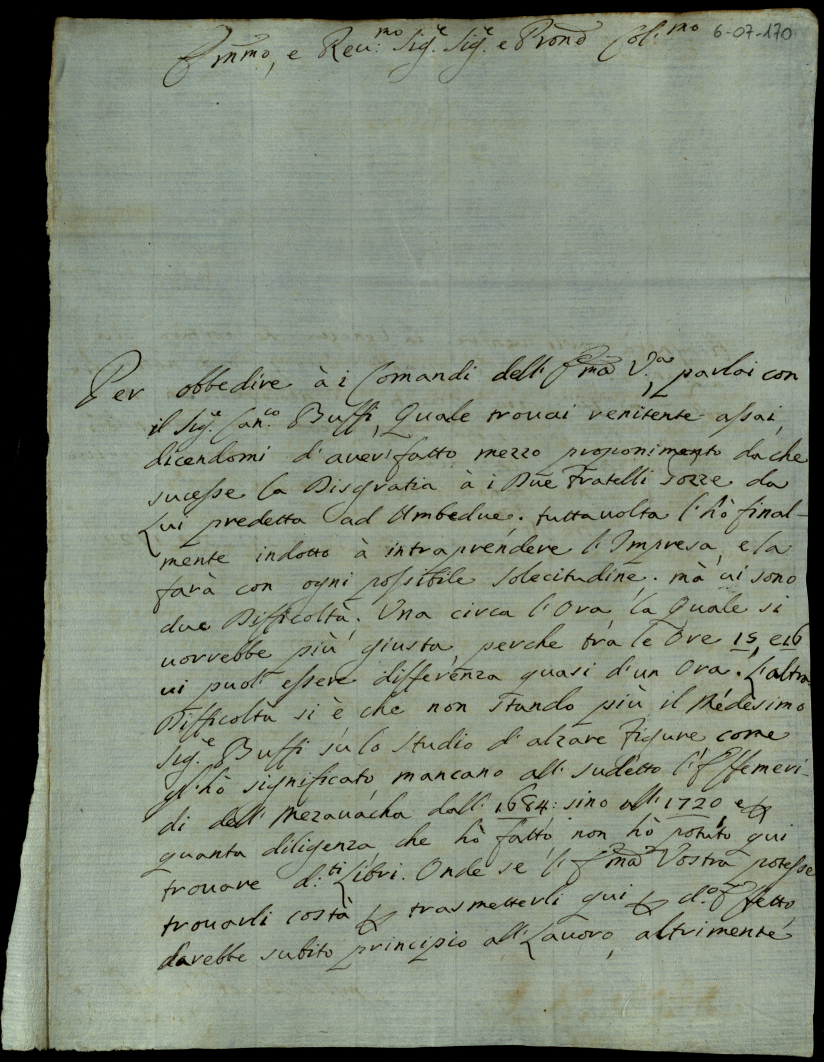 Emmo, e Reu:mo Sig:e Sig:e e Prone Col:mo 6-07-170
Per obbedire à i Comandi dell' Emã V:a, parlai con
il Sig:e Can:co Buffi, Quale trouai renitente assai,
dicendomi d'auer fatto mezzo proponimento da che
sucesse la Disgratia à i Due Fratelli Sozze da
Lui predetta ad Ambedue. tuttauolta l'hò final-
mente indotto à intraprendere l'Impresa, e la
farà con ogni possibile solecitudine. mà ui sono
due Difficoltà. Una circa l'Ora, la Quale si
uorrebbe più giusta, perche tra le Ore 15, e 16
ui puol essere differenza quasi d'un Ora. L'altra
Difficoltà si è che non stando più il Medesimo
Sig:e Buffi sù lo Studio d'alzare Figure come
gl'hò significato, mancano all' sudetto l'Effemeri-
di dell' Mezauacha dall' 1684: sino all' 1720 e
quanta diligenza che hò fatto non hò potuto qui
trouare d:ti Libri. Onde se l'Emã Vostra potesse
trouarli costà trasmetterli qui d:o Effetto,
darebbe subito principio all' Lauoro, altrimente